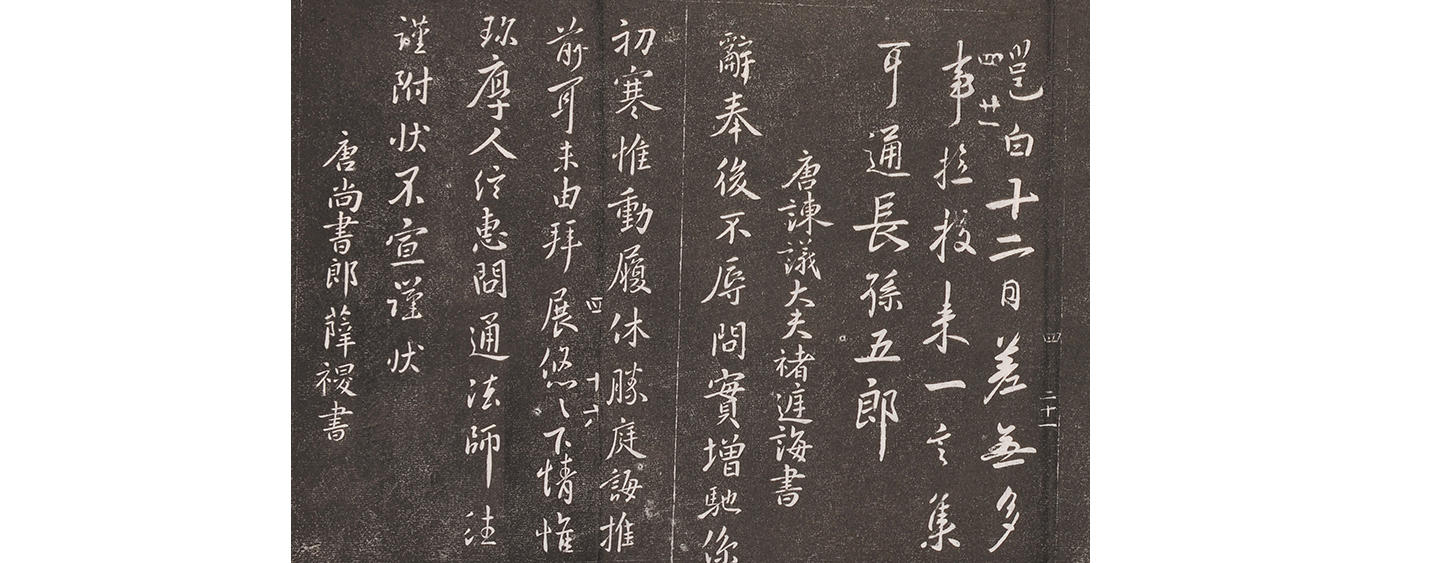 邕白十二日差無多
四 廿一
事撿校未一言集
耳通長孫五郎
四 二十一
唐諫議大夫褚遂誨書
辭奉後不辱問實增馳係
初寒惟動履休勝庭誨推
前耳未由拜展悠々下情惟
四 十六
珎厚人信惠問通法師注
謹附状不宣謹状
唐尚書郎薛稷書